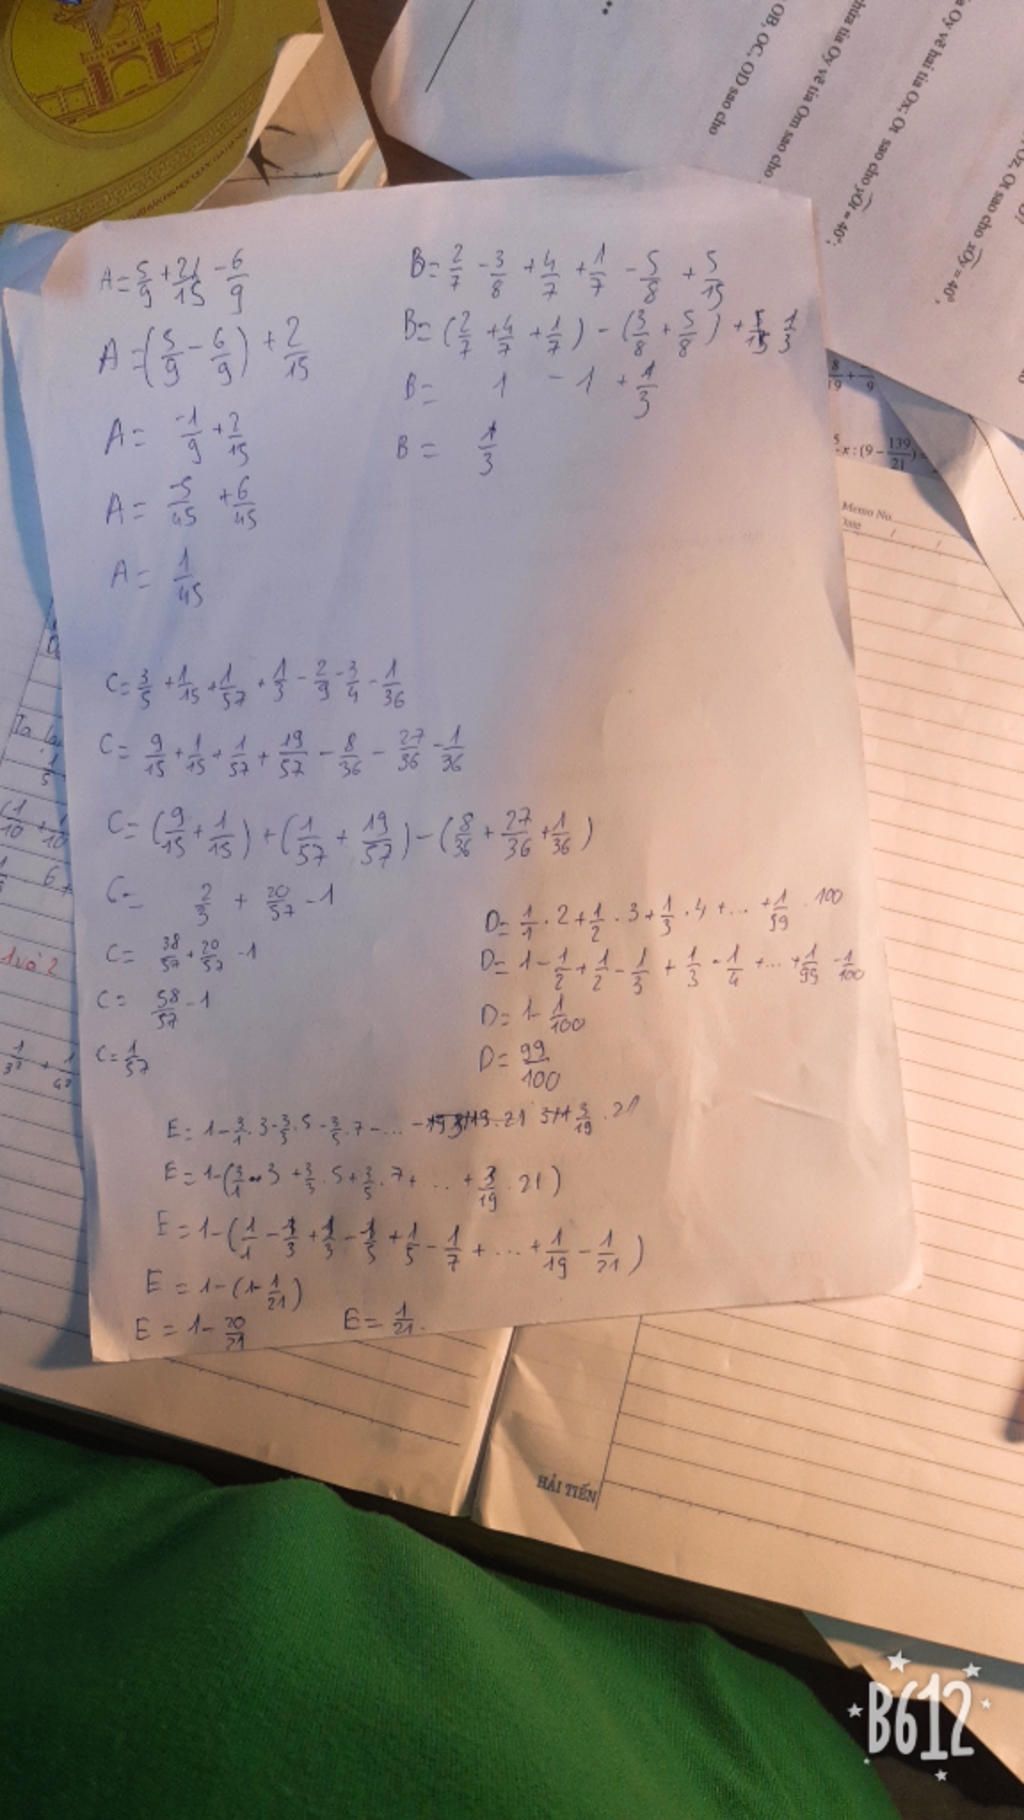 A = 5/9 + 2/15 - 6/9
A = (5/9 - 6/9) + 2/15
A = -1/9 + 2/15
A = -5/45 + 6/45
A = 1/45
B = 2/7 - 3/8 + 4/7 + 1/7 - 5/8 + 5/15
B = (2/7 + 4/7 + 1/7) - (3/8 + 5/8) + 1/3
B = 1 - 1 + 1/3
B = 1/3
C = 3/5 + 1/15 + 1/57 + 1/3 - 2/9 - 3/4 - 1/36
C = 9/15 + 1/15 + 1/57 + 19/57 - 8/36 - 27/36 - 1/36
C = (9/15 + 1/15) + (1/57 + 19/57) - (8/36 + 27/36 + 1/36)
C = 2/3 + 20/57 - 1
C = 38/57 + 20/57 - 1
C = 58/57 - 1
C = 1/57
D = 1/1 . 2 + 1/2 . 3 + 1/3 . 4 + ... + 1/99 . 100
D = 1 - 1/2 + 1/2 - 1/3 + 1/3 - 1/4 + ... + 1/99 - 1/100
D = 1 - 1/100
D = 99/100
E = 1 - 3/1 . 3 - 3/3 . 5 - 3/5 . 7 - ... - 3/19 . 21
E = 1 - (3/1 . 3 + 3/3 . 5 + 3/5 . 7 + ... + 3/19 . 21)
E = 1 - (1/1 - 1/3 + 1/3 - 1/5 + 1/5 - 1/7 + ... + 1/19 - 1/21)
E = 1 - (1 - 1/21)
E = 1 - 20/21
E = 1/21.
OB, OC, OD sao cho
tia Oy vẽ tia Om sao cho
Oy vẽ hai tia Ox; Ot sao cho yOt = 40°;
Oz, Ot sao cho xOy = 40°,
8/19 +
x : (9 - 139/21)
Memo No.
Date / /
1 và 2
HẢI TIẾN
B612